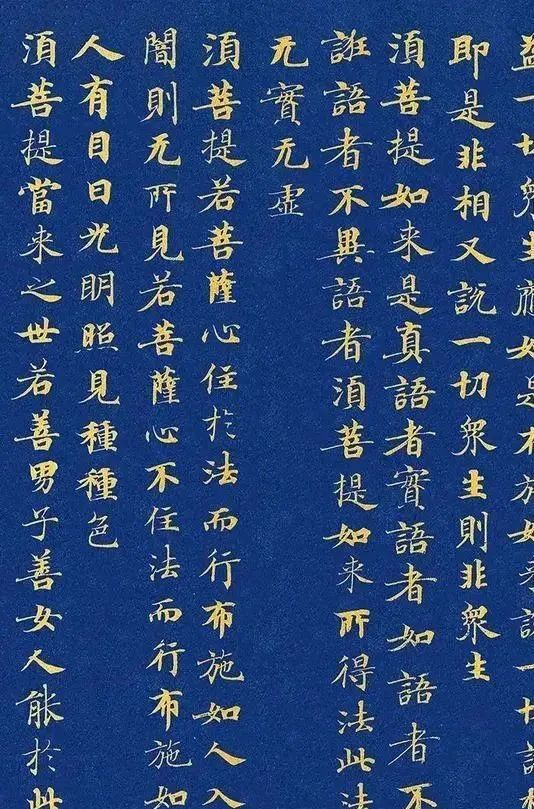 益一切衆生應如是布施如来說一切
即是非相又説一切衆生則非衆生
須菩提如来是真語者實語者如語者不
誑語者不異語者須菩提如来所得法此法
无實无虛
須菩提若菩薩心住於法而行布施如人入
闇則无所見若菩薩心不住法而行布施如
人有目日光明照見種種色
須菩提當来之世若善男子善女人能於此